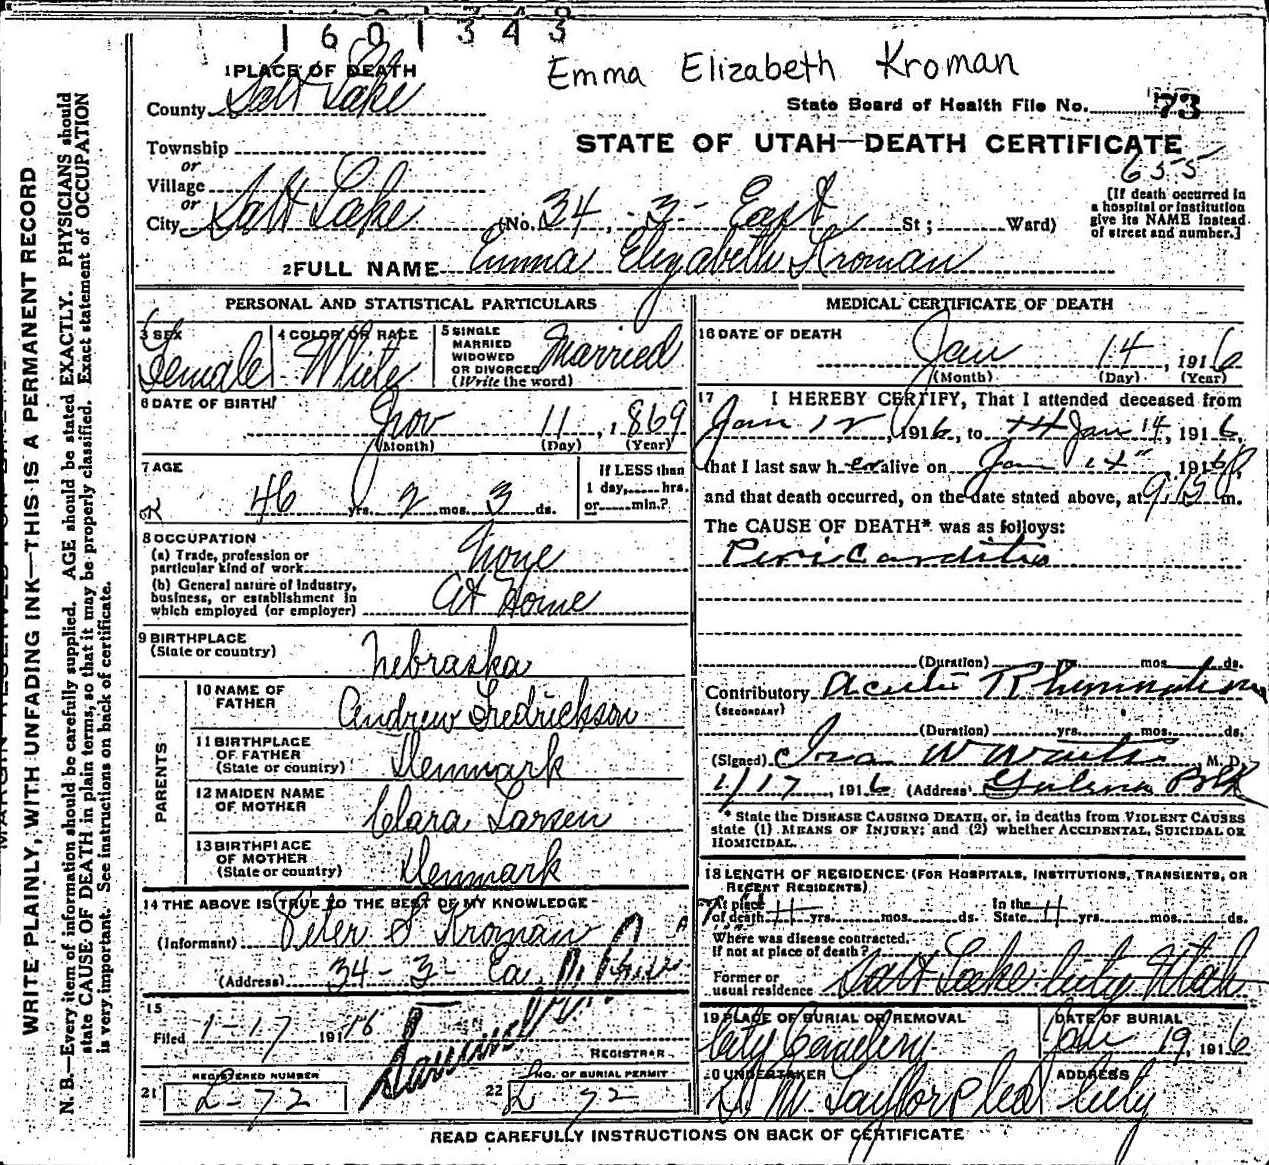 1601343
Emma Elizabeth Kroman
1 PLACE OF DEATH
County Salt Lake
State Board of Health File No. 73
Township
or
STATE OF UTAH—DEATH CERTIFICATE
655
Village
or
City Salt Lake (No. 34 - 3 - East St; Ward)
[If death occurred in
a hospital or institution
give its NAME instead
of street and number.]
2 FULL NAME Emma Elizabeth Kroman
PERSONAL AND STATISTICAL PARTICULARS
3 SEX Female
4 COLOR OR RACE White
5 SINGLE
MARRIED
WIDOWED
OR DIVORCED
(Write the word) Married
6 DATE OF BIRTH
Nov 11, 1869
(Month) (Day) (Year)
7 AGE
46 yrs. 2 mos. 3 ds.
If LESS than
1 day, hrs.
or min.?
8 OCCUPATION
(a) Trade, profession or
particular kind of work None
(b) General nature of industry,
business, or establishment in
which employed (or employer) At Home
9 BIRTHPLACE
(State or country) Nebraska
PARENTS
10 NAME OF
FATHER Andrew Fredrickson
11 BIRTHPLACE
OF FATHER
(State or country) Denmark
12 MAIDEN NAME
OF MOTHER Clara Larsen
13 BIRTHPLACE
OF MOTHER
(State or country) Denmark
14 THE ABOVE IS TRUE TO THE BEST OF MY KNOWLEDGE
(Informant) Peter S Kroman
(Address) 34 - 3 - Ea
15
Filed 1-17 1916
REGISTRAR
REGISTERED NUMBER
21 L-72
NO. OF BURIAL PERMIT
22 L 72
MEDICAL CERTIFICATE OF DEATH
16 DATE OF DEATH
Jan 14, 1916
(Month) (Day) (Year)
17 I HEREBY CERTIFY, That I attended deceased from
Jan 12, 1916, to Jan 14, 1916,
that I last saw her alive on Jan 14, 1916,
and that death occurred, on the date stated above, at 9:15 P m.
The CAUSE OF DEATH* was as follows:
Pericarditis
(Duration) yrs. mos. ds.
Contributory Acute Rheumatism
(SECONDARY)
(Duration) yrs. mos. ds.
(Signed) M. D.
1/17, 1916 (Address)
* State the DISEASE CAUSING DEATH, or, in deaths from VIOLENT CAUSES
state (1) MEANS OF INJURY; and (2) whether ACCIDENTAL, SUICIDAL OR
HOMICIDAL.
18 LENGTH OF RESIDENCE (FOR HOSPITALS, INSTITUTIONS, TRANSIENTS, OR
RECENT RESIDENTS)
At place
of death 11 yrs. mos. ds.
In the
State 11 yrs. mos. ds.
Where was disease contracted,
if not at place of death?
Former or
usual residence Salt Lake City Utah
19 PLACE OF BURIAL OR REMOVAL
City Cemetery
DATE OF BURIAL
Jan 19, 1916
20 UNDERTAKER
S. M. Taylor
ADDRESS
City
READ CAREFULLY INSTRUCTIONS ON BACK OF CERTIFICATE
WRITE PLAINLY, WITH UNFADING INK—THIS IS A PERMANENT RECORD
N. B.—Every item of information should be carefully supplied. AGE should be stated EXACTLY. PHYSICIANS should
state CAUSE OF DEATH in plain terms, so that it may be properly classified. Exact statement of OCCUPATION
is very important. See instructions on back of certificate.